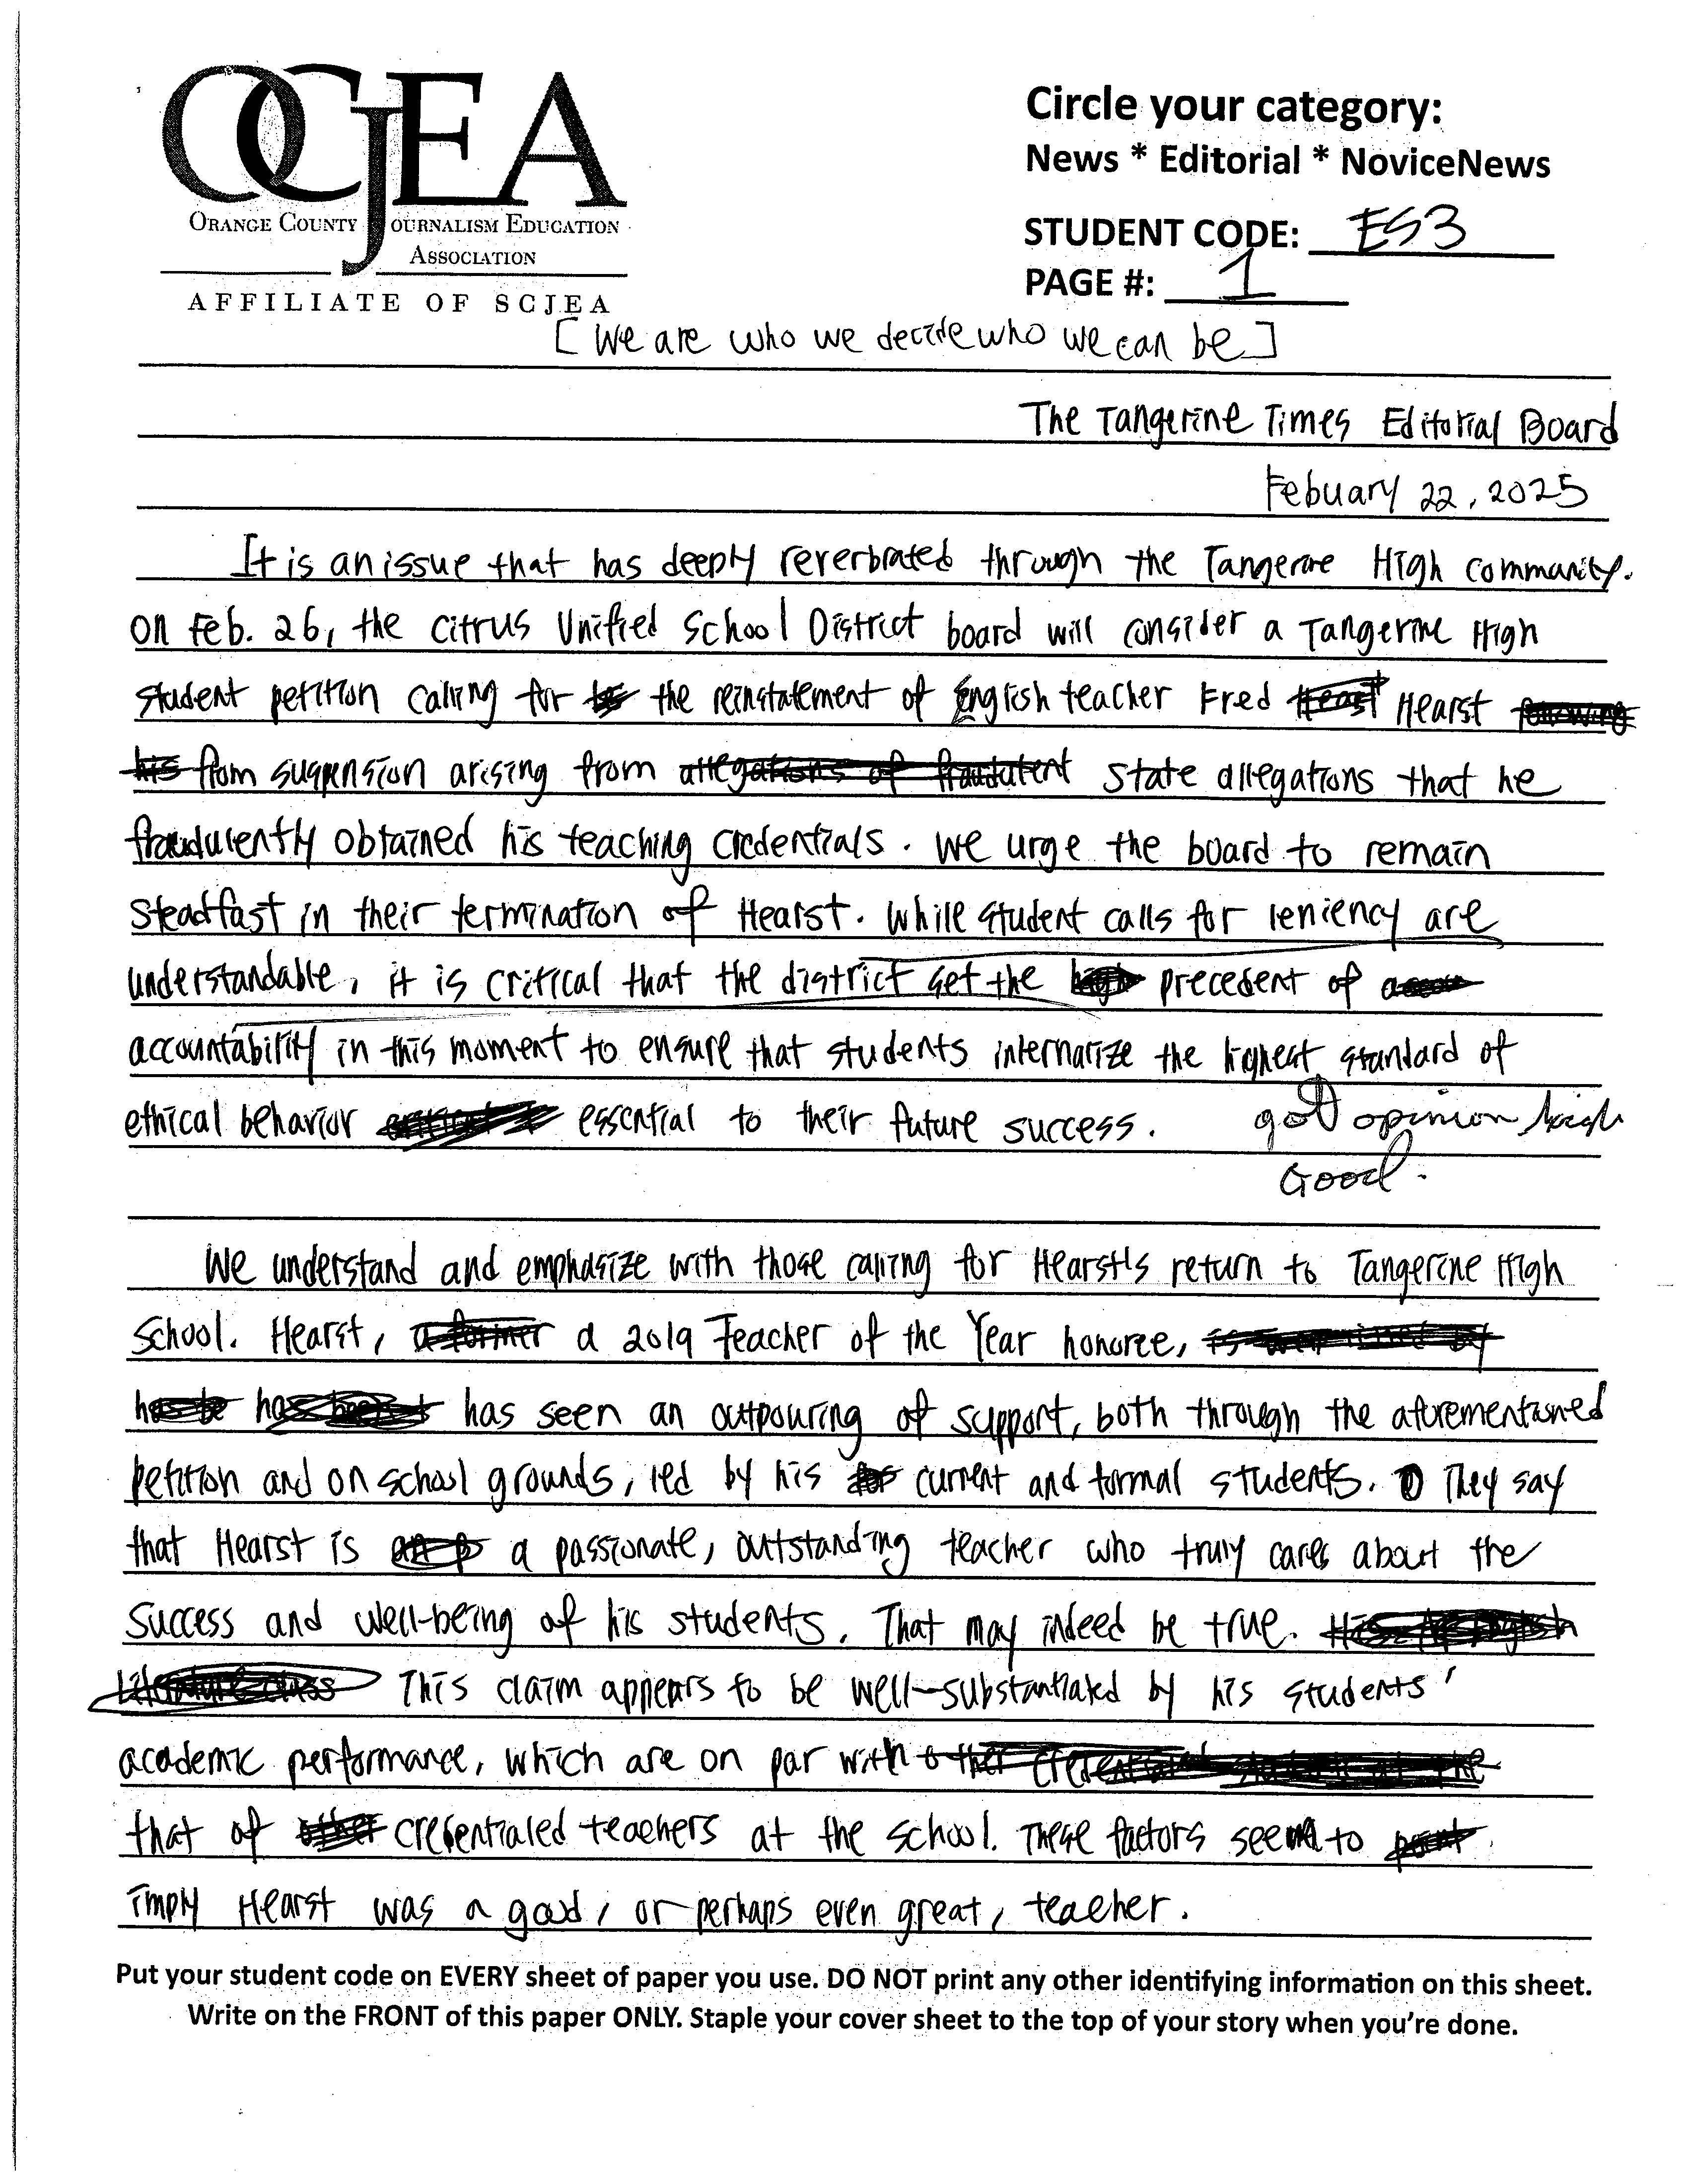 OCJEA
ORANGE COUNTY JOURNALISM EDUCATION
ASSOCIATION
AFFILIATE OF SCJEA
Circle your category:
News * Editorial * NoviceNews
STUDENT CODE: ES3
PAGE #: 1
[We are who we decide who we can be]
The Tangerine Times Editorial Board
Febuary 22, 2025
It is an issue that has deeply reverbrated through the Tangerine High community.
On Feb. 26, the Citrus Unified School District board will consider a Tangerine High
student petition calling for the reinstatement of English teacher Fred Hearst following
his from suspension arising from allegations of fraudulent state allegations that he
fraudulently obtained his teaching credentials. We urge the board to remain
steadfast in their termination of Hearst. While student calls for leniency are
understandable, it is critical that the district set the precedent of
accountability in this moment to ensure that students internalize the highest standard of
ethical behavior essential to their future success.
got opinion high
Good.
We understand and emphasize with those calling for Hearst's return to Tangerine High
School. Hearst, a former a 2019 Teacher of the Year honoree,
has be has seen an outpouring of support, both through the aforementioned
petition and on school grounds, led by his current and formal students. They say
that Hearst is a passionate, outstanding teacher who truly cares about the
success and well-being of his students. That may indeed be true.
This claim appears to be well-substantiated by his students'
academic performance, which are on par with other
that of other credentialed teachers at the school. These factors seem to
imply Hearst was a good, or perhaps even great, teacher.
Put your student code on EVERY sheet of paper you use. DO NOT print any other identifying information on this sheet.
Write on the FRONT of this paper ONLY. Staple your cover sheet to the top of your story when you're done.